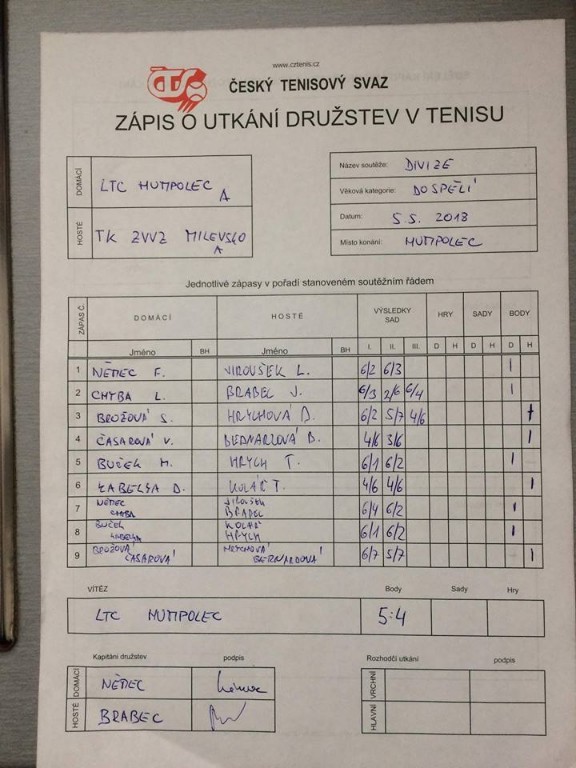 www.cztenis.cz
ČTS
ČESKÝ TENISOVÝ SVAZ
ZÁPIS O UTKÁNÍ DRUŽSTEV V TENISU
DOMÁCÍ LTC HUMPOLEC A
HOSTÉ TK ZVVZ MILEVSKO A
Název soutěže: DIVIZE
Věková kategorie: DOSPĚLÍ
Datum: 5.5. 2018
Místo konání: HUMPOLEC
Jednotlivé zápasy v pořadí stanoveném soutěžním řádem
ZÁPAS Č. DOMÁCÍ HOSTÉ VÝSLEDKY SAD HRY SADY BODY
Jméno BH Jméno BH I. II. III. D H D H D H
1 NĚMEC F. JIROUŠEK L. 6/2 6/3 1
2 CHYBA L. BRABEC J. 6/3 2/6 6/4 1
3 BROŽOVÁ S. HRYCHOVÁ D. 6/2 5/7 4/6 1
4 ČASAROVÁ V. BEDNAROVÁ B. 4/6 3/6 1
5 BUČEK M. HRYCH T. 6/1 6/2 1
6 D. KOLÁŘ T. 4/6 4/6 1
7 NĚMEC CHYBA JIROUŠEK BRABEC 6/4 6/2 1
8 BUČEK KOLÁŘ HRYCH 6/1 6/2 1
9 BROŽOVÁ ČASAROVÁ HRYCHOVÁ BERNARDOVÁ 6/7 5/7 1
VÍTĚZ Body Sady Hry
LTC HUMPOLEC 5:4
Kapitáni družstev podpis Rozhodčí utkání podpis
DOMÁCÍ NĚMEC VRCHNÍ
HOSTÉ BRABEC HLAVNÍ